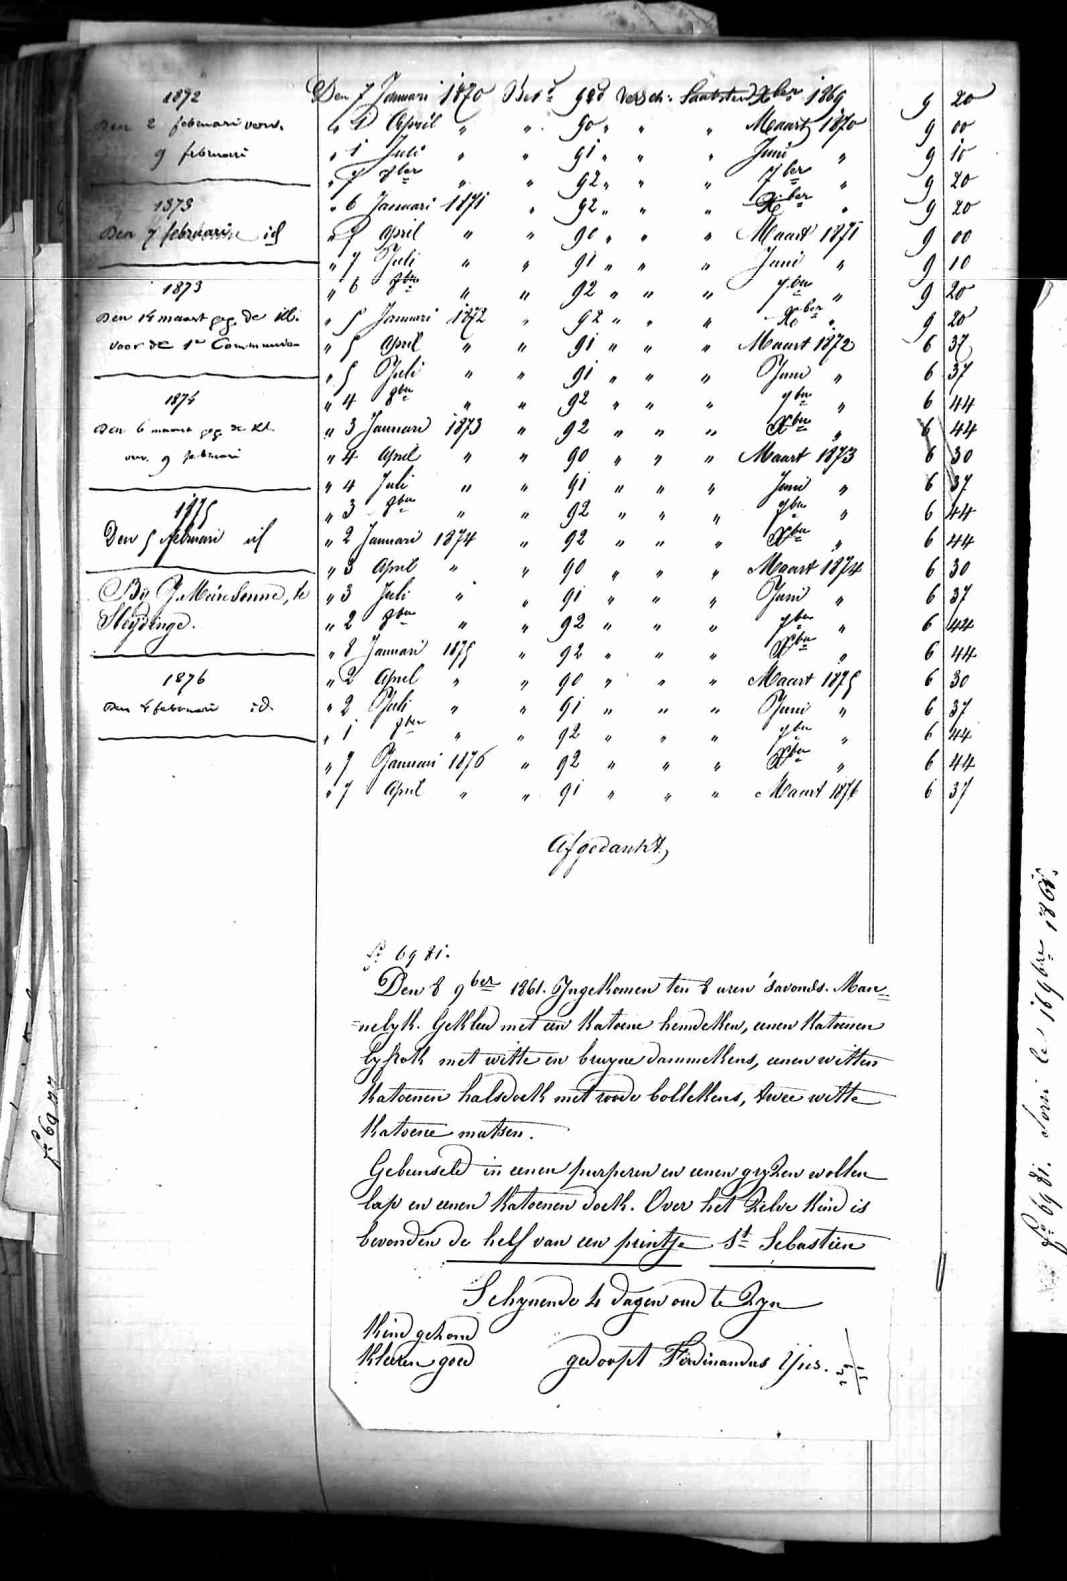 1872
Den 2 februari verv.
9 februari
1873
Den 7 februari id
1873
Den 14 maart geg. de kl.
voor de 1e Communie
1874
Den 6 maart geg. de kl.
verv. 9 februari
1875
Den 5 februari id
By J. Meiresonne, te
Sleydinge.
1876
Den 4 februari id.
Den 7 Januari 1870 Bet.d 92d versch: Laatsten Xber 1869 9 20
" 1 April " " 90 " " " Maart 1870 9 00
" 1 Juli " " 91 " " " Juni " 9 10
" 7 8ber " " 92 " " " 7ber " 9 20
" 6 Januari 1871 " 92 " " " Xber " 9 20
" 7 April " " 90 " " " Maart 1871 9 00
" 7 Juli " " 91 " " " Juni " 9 10
" 6 8ber " " 92 " " " 7ber " 9 20
" 5 Januari 1872 " 92 " " " Xber " 9 20
" 5 April " " 91 " " " Maart 1872 6 37
" 5 Juli " " 91 " " " Juni " 6 37
" 4 8ber " " 92 " " " 7ber " 6 44
" 3 Januari 1873 " 92 " " " Xber " 6 44
" 4 April " " 90 " " " Maart 1873 6 30
" 4 Juli " " 91 " " " Juni " 6 37
" 3 8ber " " 92 " " " 7ber " 6 44
" 2 Januari 1874 " 92 " " " Xber " 6 44
" 3 April " " 90 " " " Maart 1874 6 30
" 3 Juli " " 91 " " " Juni " 6 37
" 2 8ber " " 92 " " " 7ber " 6 44
" 8 Januari 1875 " 92 " " " Xber " 6 44
" 2 April " " 90 " " " Maart 1875 6 30
" 2 Juli " " 91 " " " Juni " 6 37
" 1 8ber " " 92 " " " 7ber " 6 44
" 7 Januari 1876 " 92 " " " Xber " 6 44
" 7 April " " 91 " " " Maart 1876 6 37
Afgedankt,
fo 6981.
Den 8 9ber 1861. Ingekomen ten 8 uren 's avonds. Man=
=nelyk. Gekleed met een katoene hemdeken, eenen katoenen
lyfrok met witte en bruyne dammekens, eenen witten
katoenen halsdoek met roode bollekens, twee witte
katoene mutsen.
Gebunseld in eenen purperen en eenen gryzen wollen
lap en eenen katoenen doek. Over het zelve kind is
bevonden de helf van een printje St Sebastien
Schynende 4 dagen oud te zyn
Kind gezond
kleeren goed gedoopt Ferdinandus Ijus.
fo 6977
fo 6981. Sorti le 16 9bre 1861.